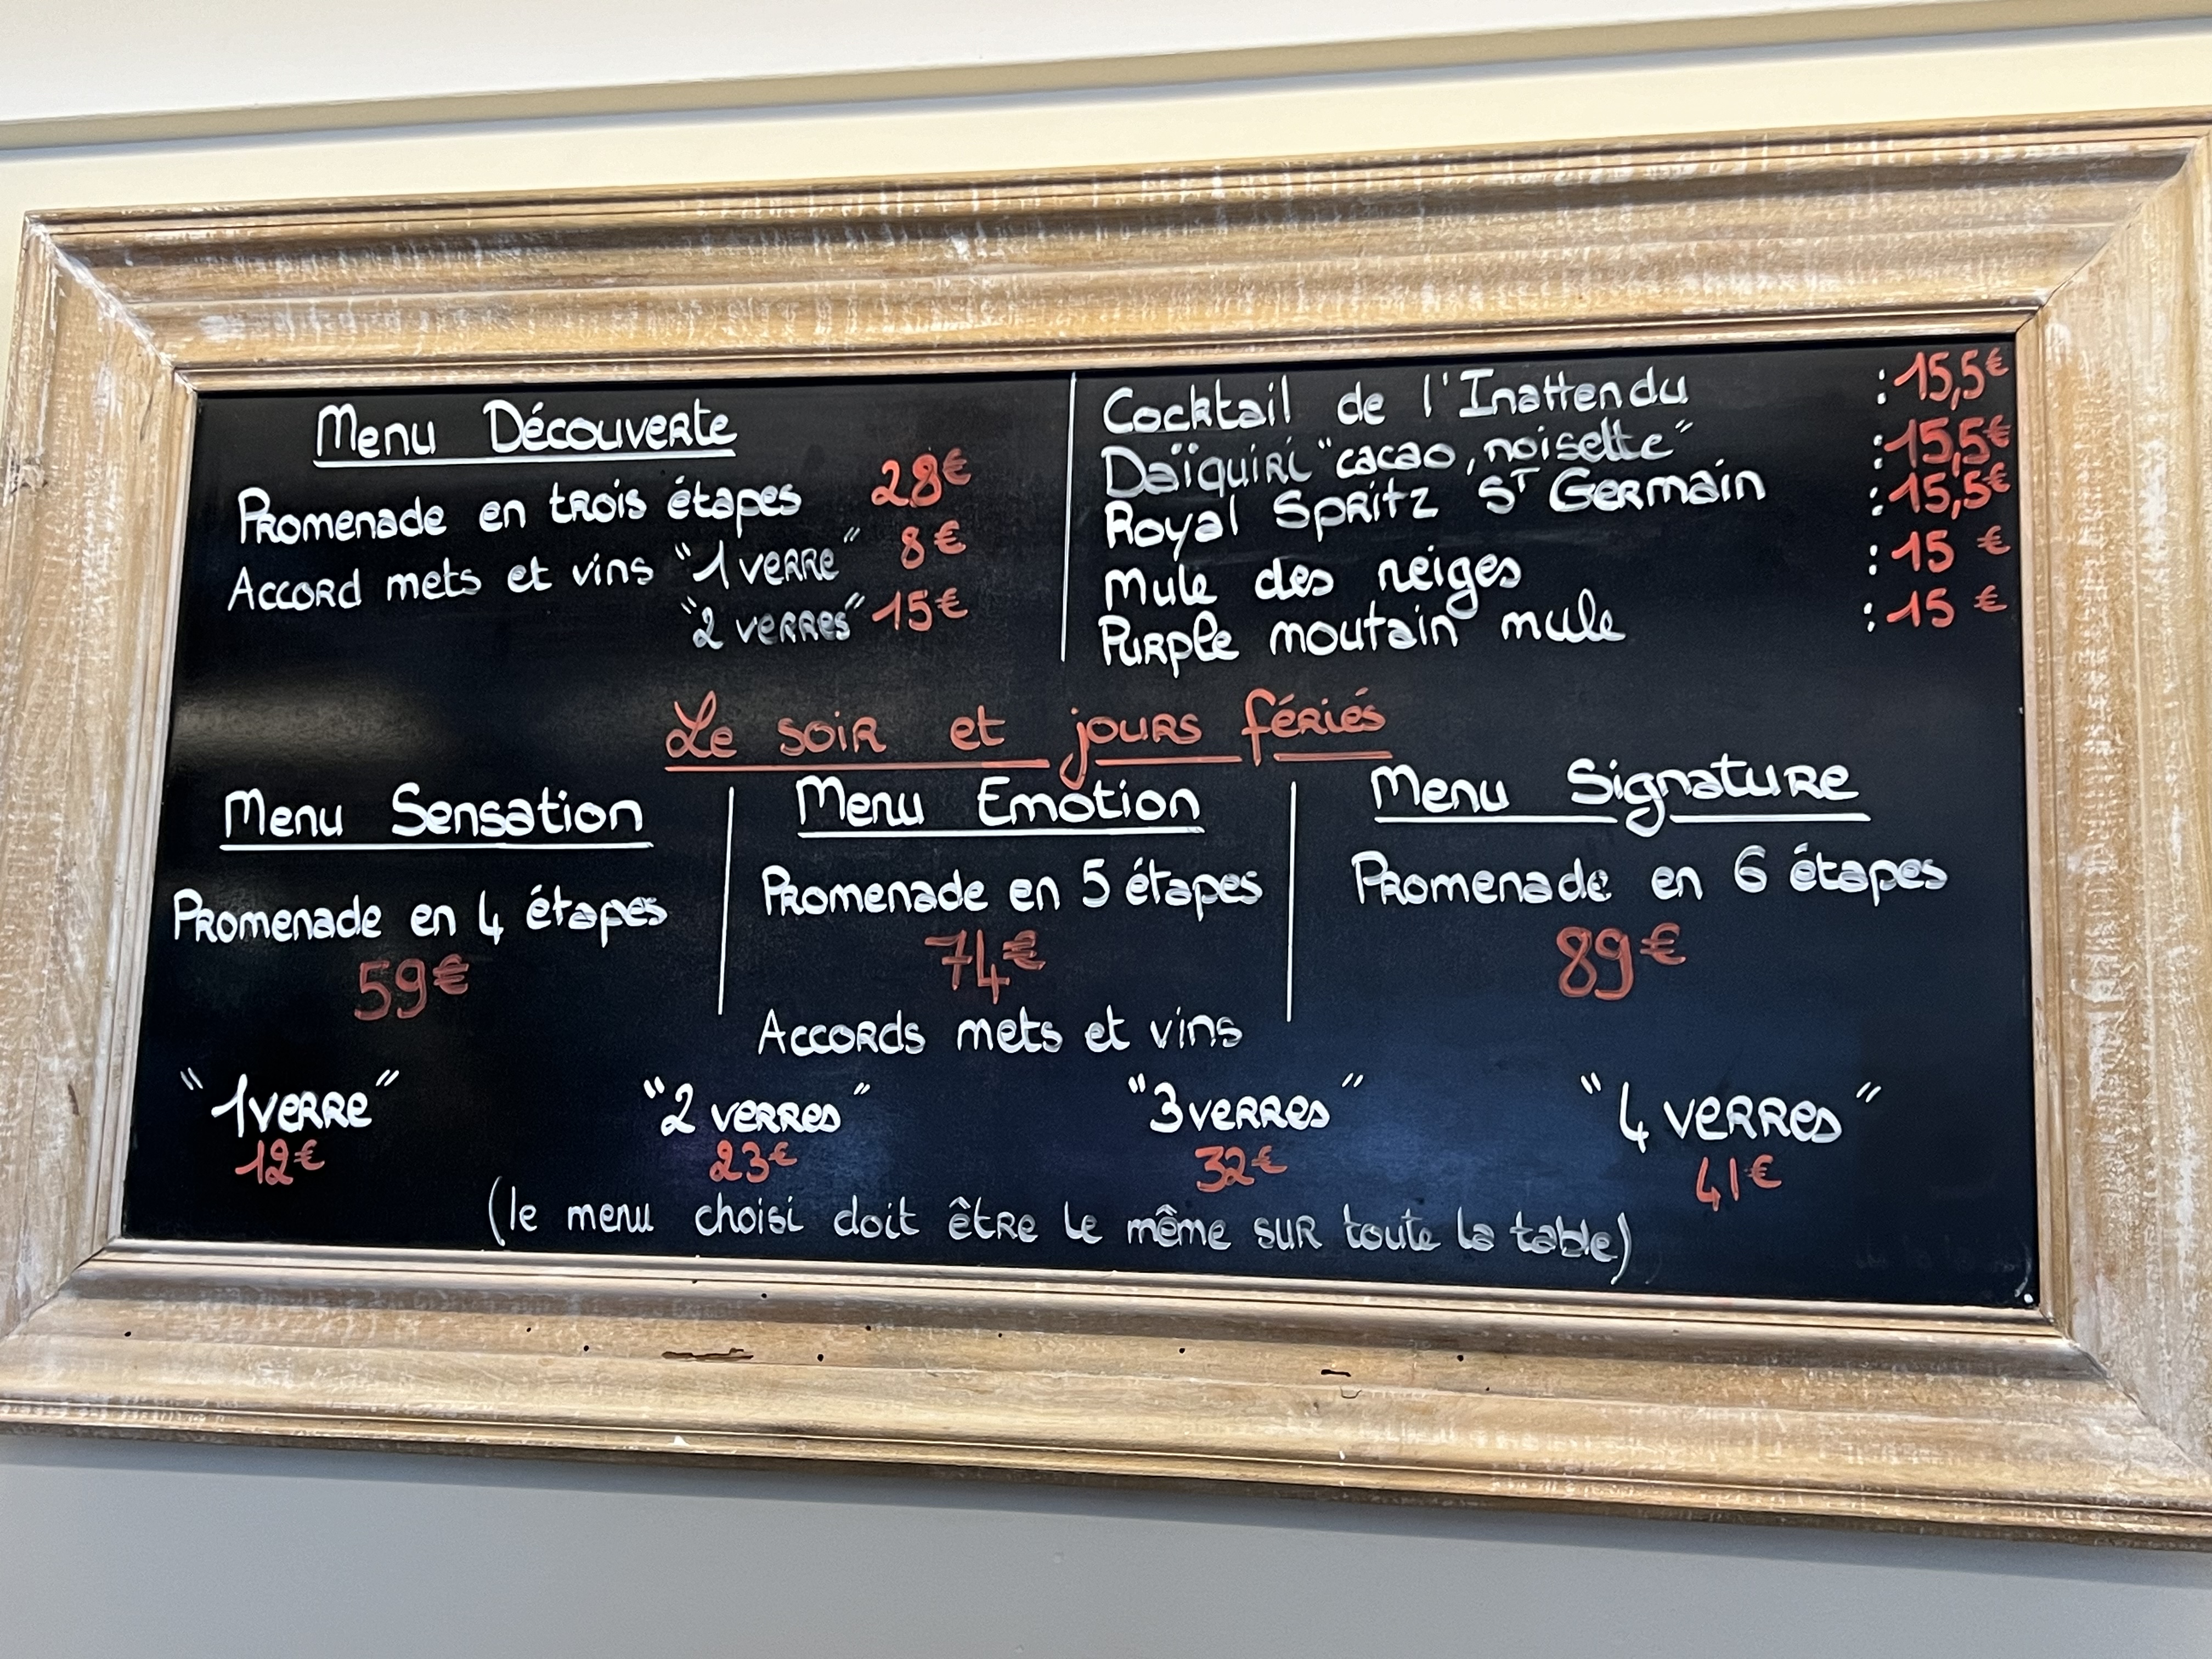 Menu Découverte
Promenade en trois étapes 28€
Accord mets et vins "1 verre" 8€
"2 verres" 15€
Cocktail de l'Inattendu : 15,5€
Daïquiri "cacao, noisette" : 15,5€
Royal Spritz St Germain : 15,5€
Mule des neiges : 15 €
Purple moutain mule : 15 €
Le soir et jours fériés
Menu Sensation
Promenade en 4 étapes
59€
Menu Emotion
Promenade en 5 étapes
74€
Menu Signature
Promenade en 6 étapes
89€
Accords mets et vins
"1 verre" "2 verres" "3 verres" "4 verres"
12€ 23€ 32€ 41€
(le menu choisi doit être le même sur toute la table)